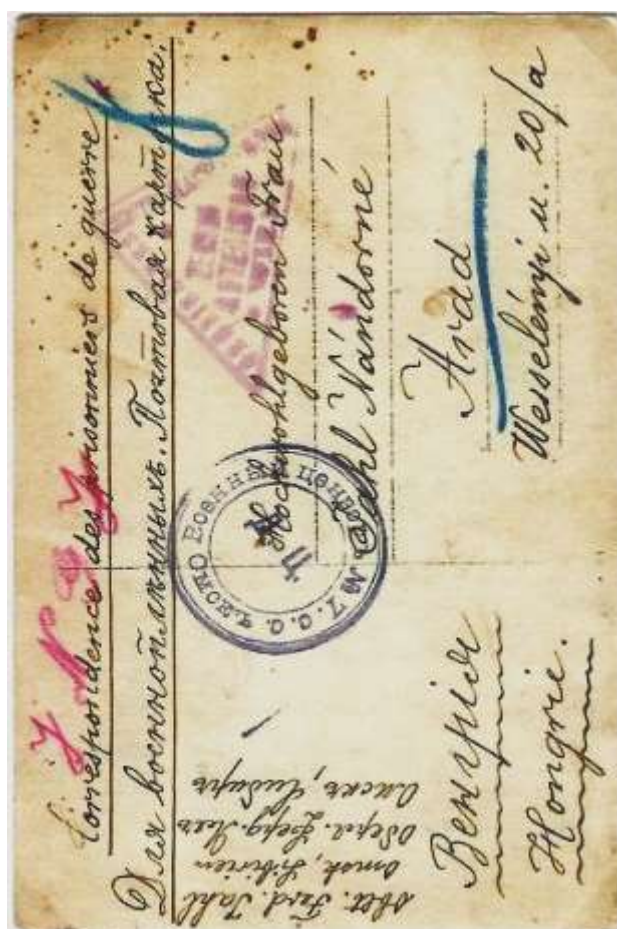 Correspondance des prisonniers de guerre.
Для военнопленныхъ. Почтовая карточка.
Hochwohlgeboren Frau
Jahl Nándorné
Arad
Wesselényi u. 20/a
Венгрія
Hongrie.
Oblt. Ferd. Jahl
Omsk, Sibirien
Омскъ, Сибирь
Военный цензоръ № 7. г. Омскъ